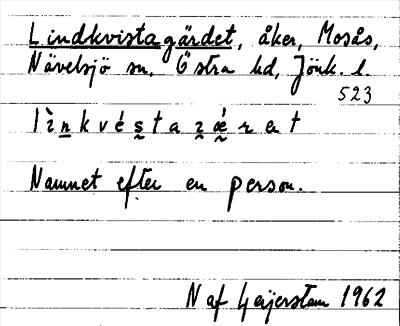 Lindkvistagärdet, åker, Mosås,
Nävelsjö sn, Östra hd, Jönk. l.
523
Namnet efter en person.
N af Geijerstam 1962